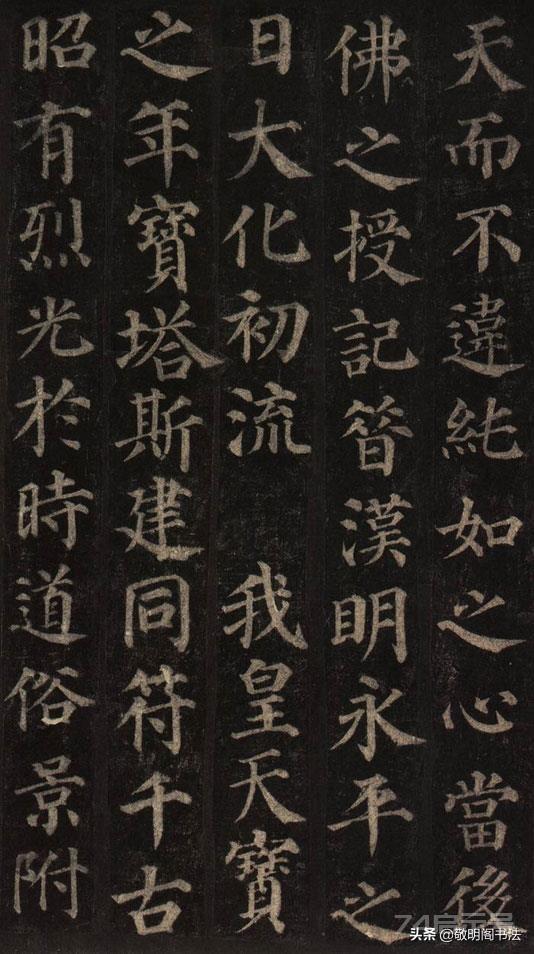 天而不違純如之心當後
佛之授記昝漢明永平之
日大化初流 我皇天寶
之年寶塔斯建同符千古
昭有烈光於時道俗景附
头条 @敬明阁书法